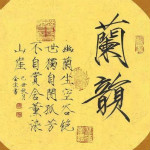 蘭韻
幽蘭生空谷絕
世獨自閑孤芳
不自賞含薰深
山崖